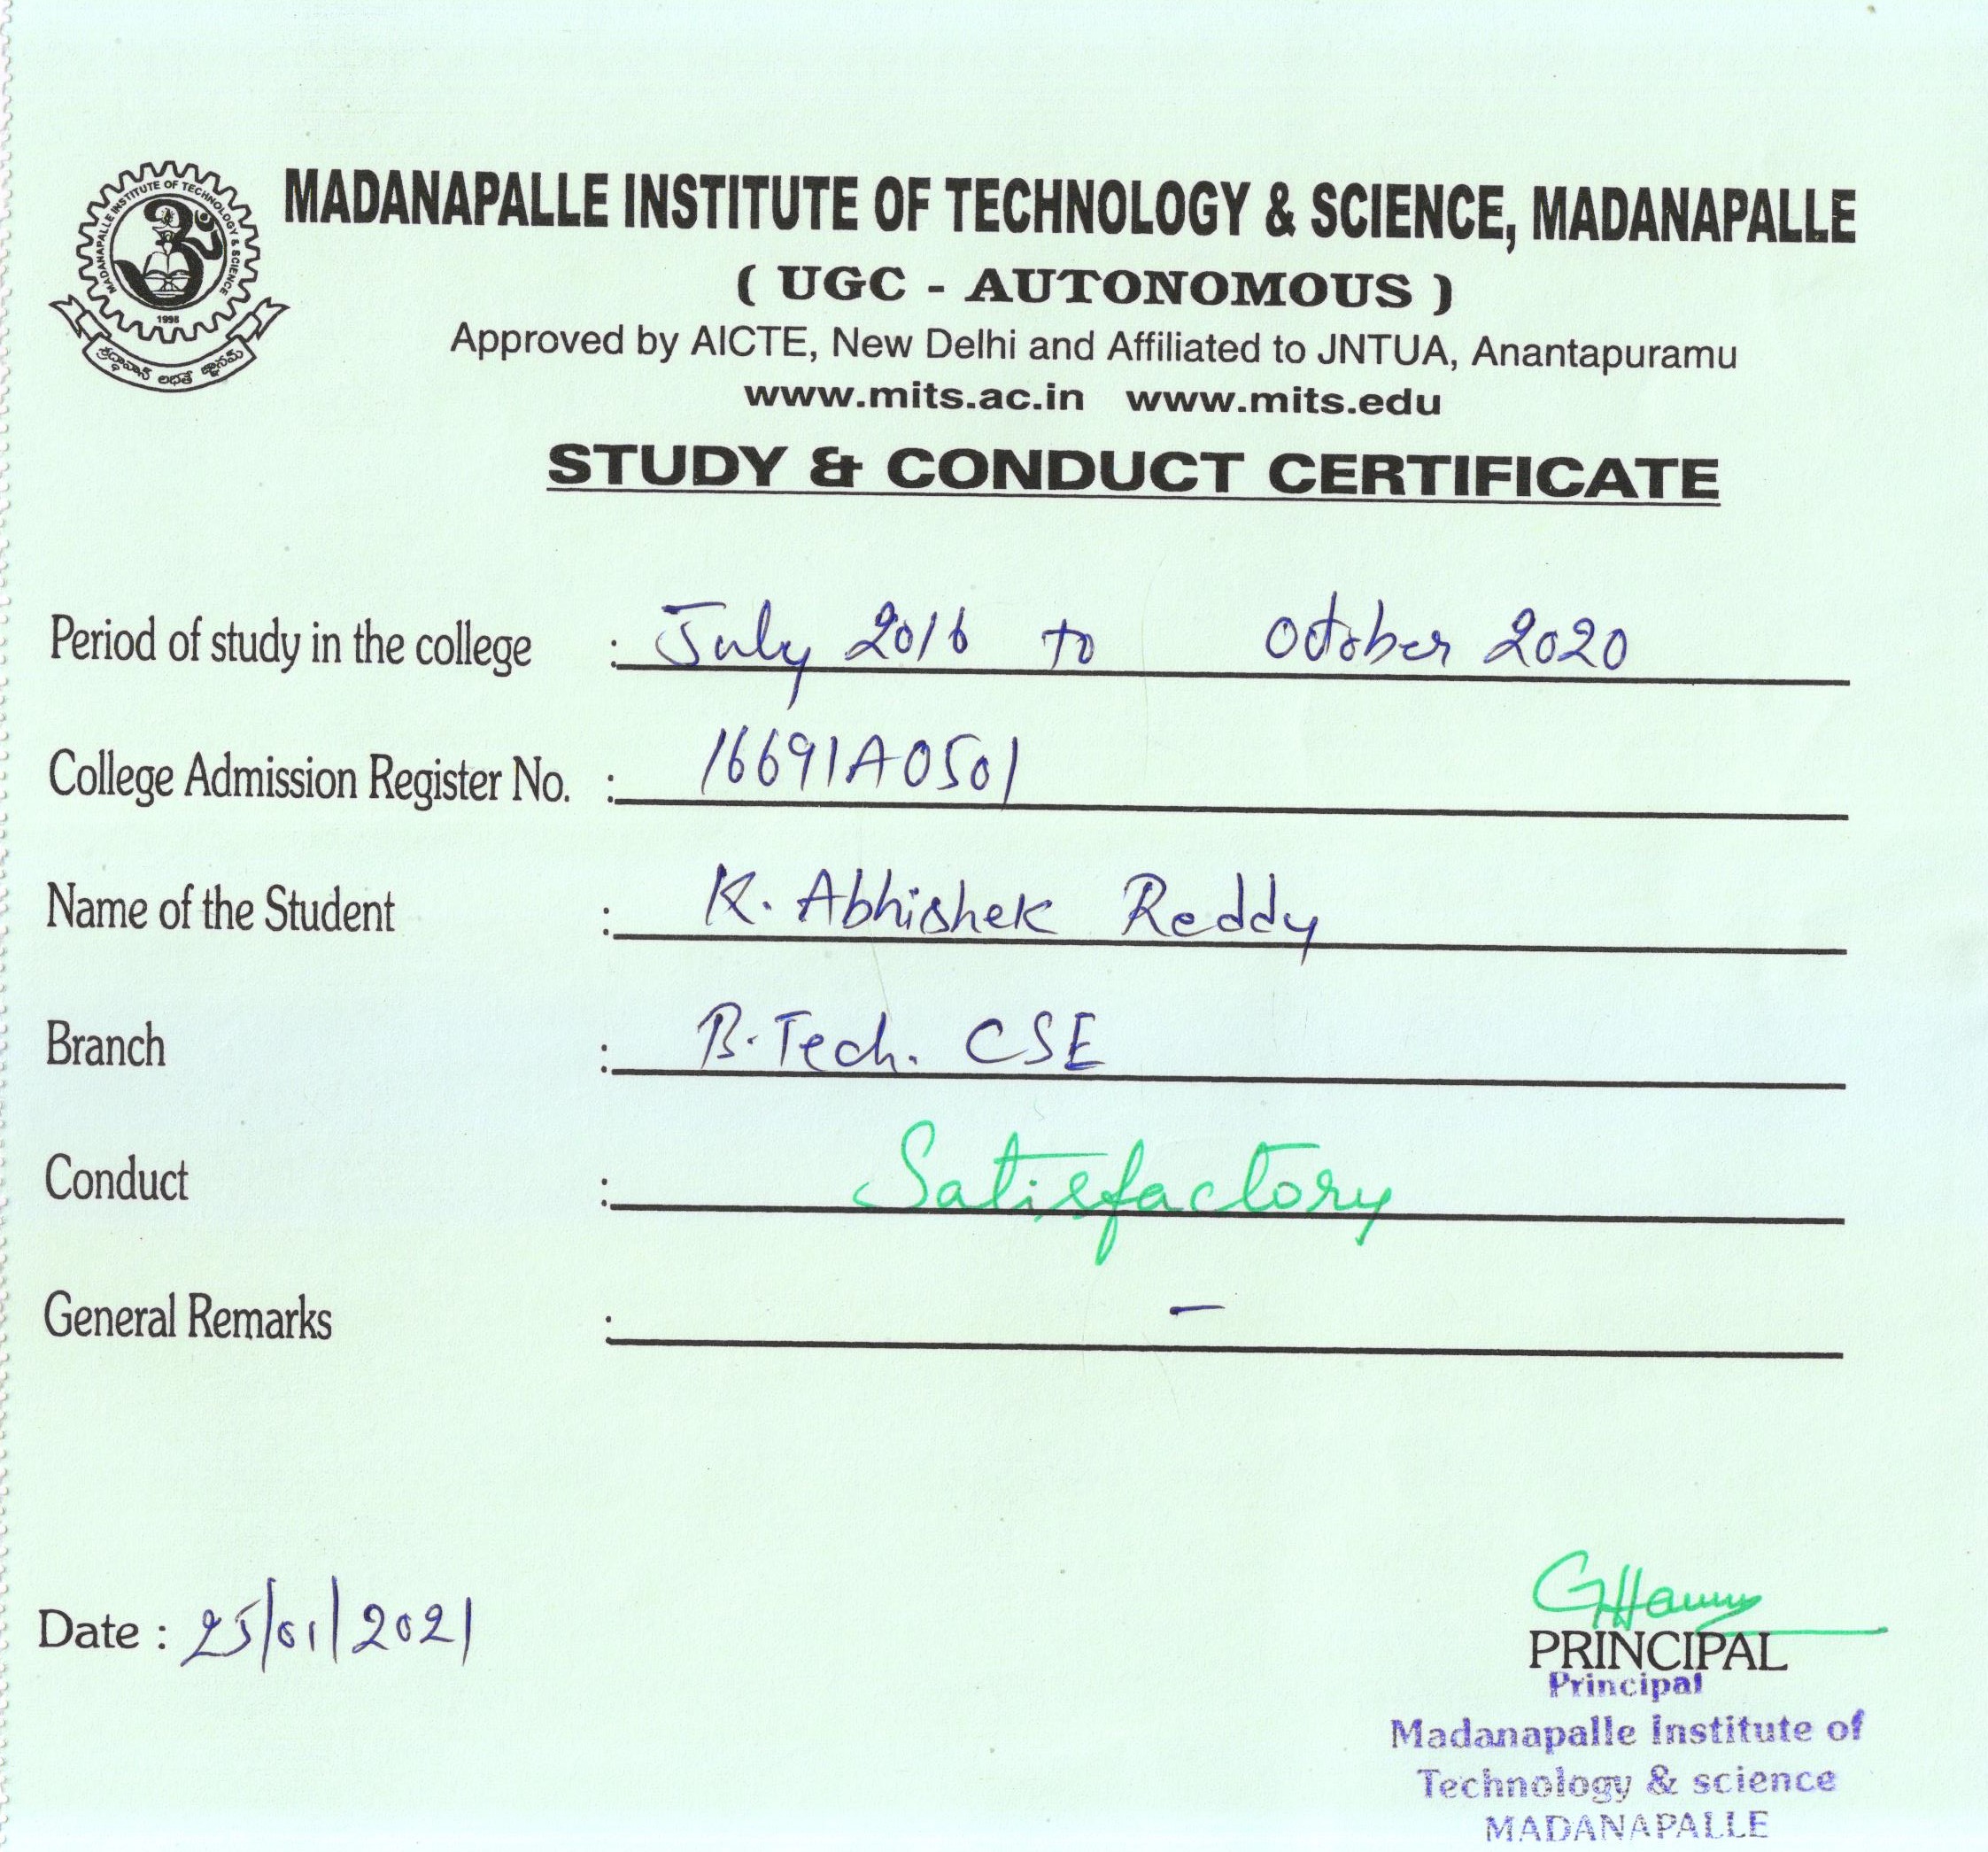 MADANAPALLE INSTITUTE OF TECHNOLOGY & SCIENCE
1998
శ్రద్ధావాన్ లభతే జ్ఞానమ్
MADANAPALLE INSTITUTE OF TECHNOLOGY & SCIENCE, MADANAPALLE
( UGC - AUTONOMOUS )
Approved by AICTE, New Delhi and Affiliated to JNTUA, Anantapuramu
www.mits.ac.in www.mits.edu
STUDY & CONDUCT CERTIFICATE
Period of study in the college : July 2016 to October 2020
College Admission Register No. : 16691A0501
Name of the Student : K. Abhishek Reddy
Branch : B.Tech. CSE
Conduct : Satisfactory
General Remarks : –
Date : 25/01/2021
PRINCIPAL
Principal
Madanapalle Institute of
Technology & science
MADANAPALLE